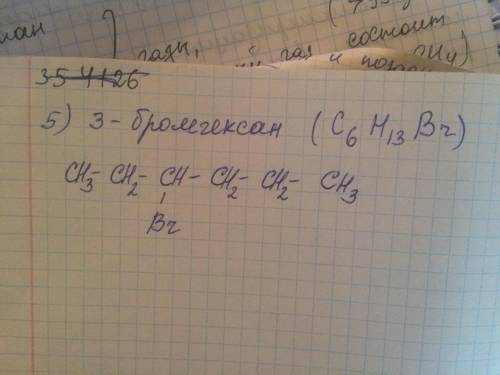 газы,
газ
состоит
и
35 4126
5) 3-бромгексан (C6H13Br)
CH3-CH2-CH-CH2-CH2-CH3
Br